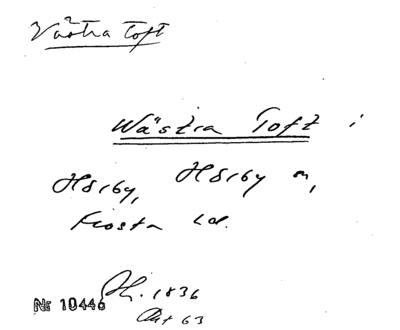 Västra Toft
Wästra Toft i
Hörby, Hörby sn,
Frosta hd.
Ph. 1836
Akt 63
Nr 10446